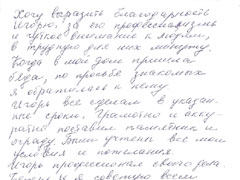 Хочу выразить благодарность
Игорю, за его профессионализм
и чуткое внимание к людям,
в трудную для них минуту.
Когда в мой дом пришла
беда, по просьбе знакомых
я обратилась к нему.
Игорь все сделал в указан-
ные сроки. Грамотно и акку-
ратно поставил памятник и
ограду. Были учтены все мои
условия и пожелания.
Игорь профессионал своего дела.
я советую всем